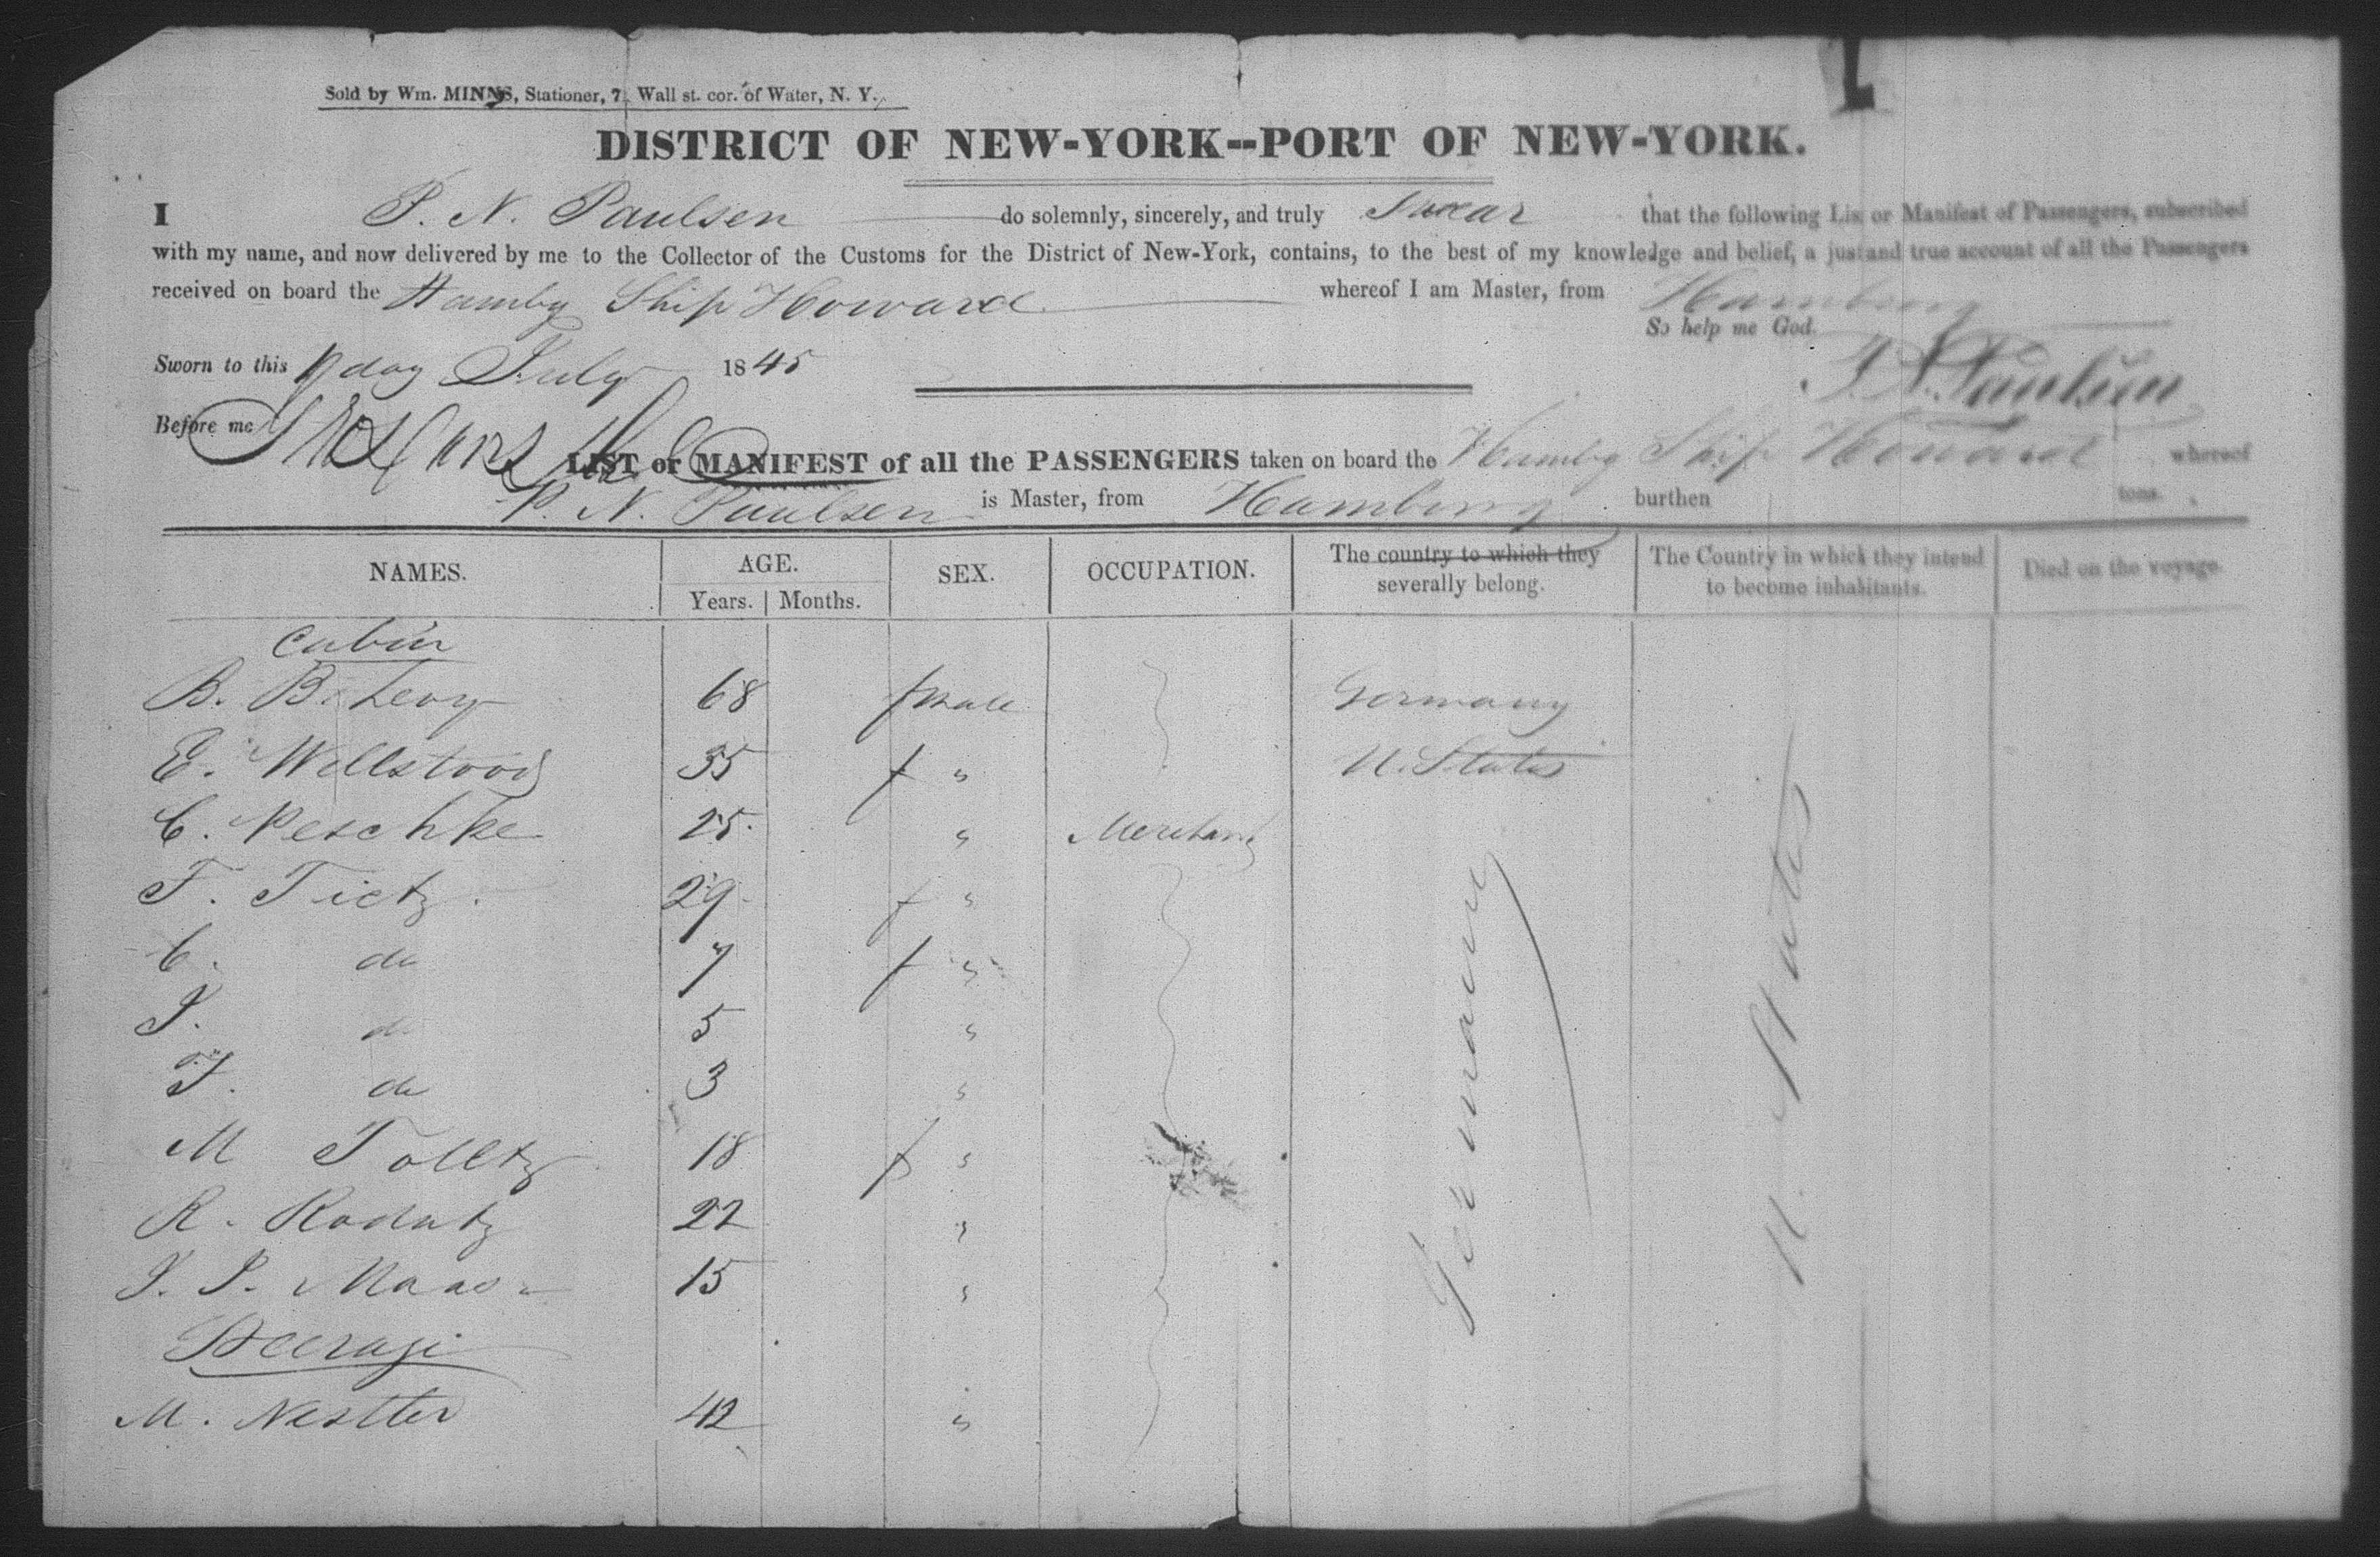 Sold by Wm. MINNS, Stationer, 7 Wall st. cor. of Water, N. Y.
DISTRICT OF NEW-YORK--PORT OF NEW-YORK.
I P. N. Paulsen do solemnly, sincerely, and truly Swear that the following List or Manifest of Passengers, subscribed
with my name, and now delivered by me to the Collector of the Customs for the District of New-York, contains, to the best of my knowledge and belief, a just and true account of all the Passengers
received on board the Hambg Ship Howard whereof I am Master, from Hamburg
So help me God.
Sworn to this day July 1845
P. N. Paulsen
Before me
LIST or MANIFEST of all the PASSENGERS taken on board the Hambg Ship Howard whereof
P. N. Paulsen is Master, from Hamburg burthen tons.
NAMES. AGE. Years. Months. SEX. OCCUPATION. The country to which they severally belong. The Country in which they intend to become inhabitants. Died on the voyage.
Cabin
B. B. Levy 68 f male Germany
E. Wellstood 35 f " U. States
C. Peschke 25 " Merchant
F. Tietz 29 f "
C. do 7 f "
J. do 5 "
F. do 3 "
M Tolltz 18 f "
R. Radatz 22 "
J. P. Maas 15 "
Steerage
M. Nestler 42 "
Germany
U. States